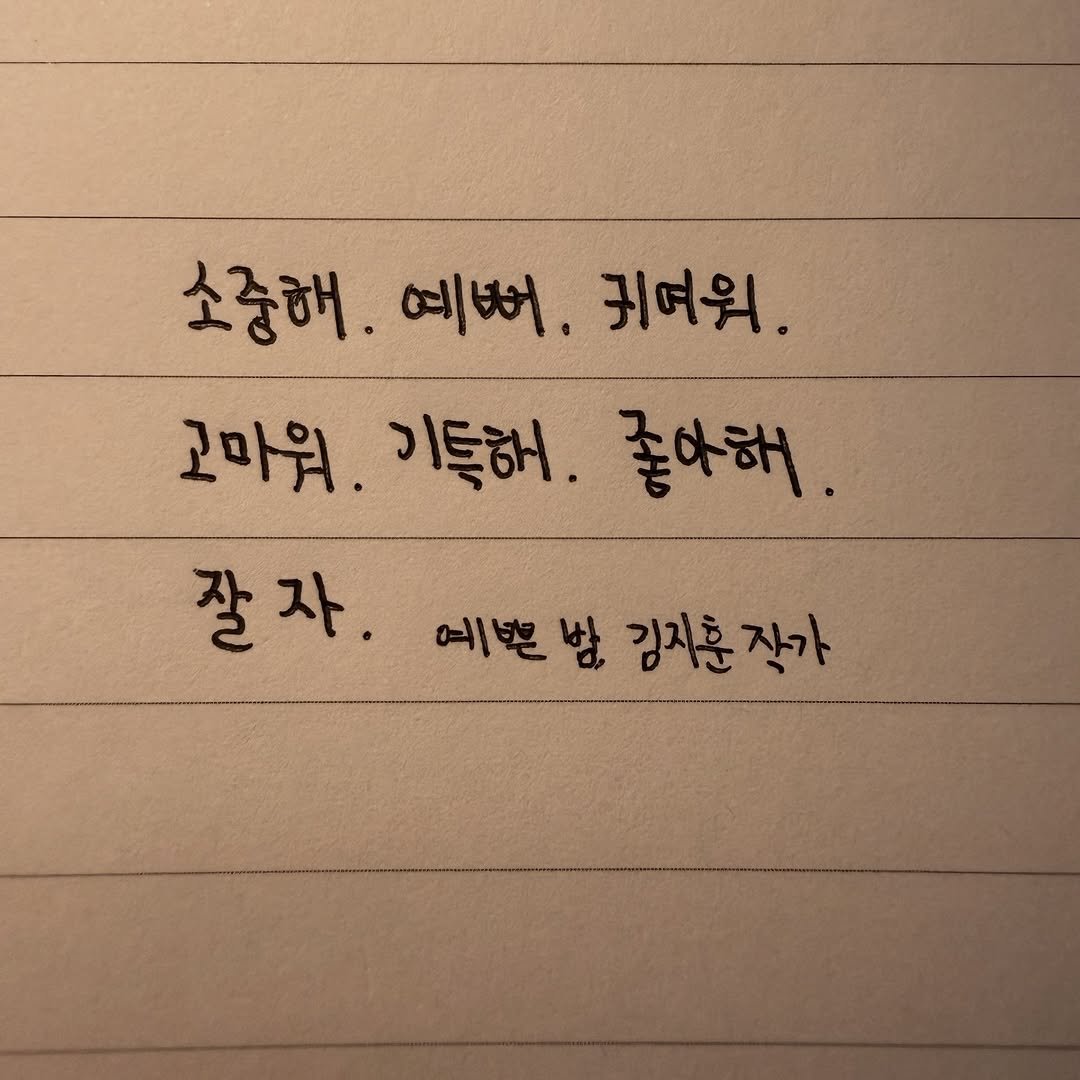 소중해. 예뻐. 귀여워.
고마워. 기특해. 좋아해.
잘 자. 예쁜 밤, 김지훈 작가